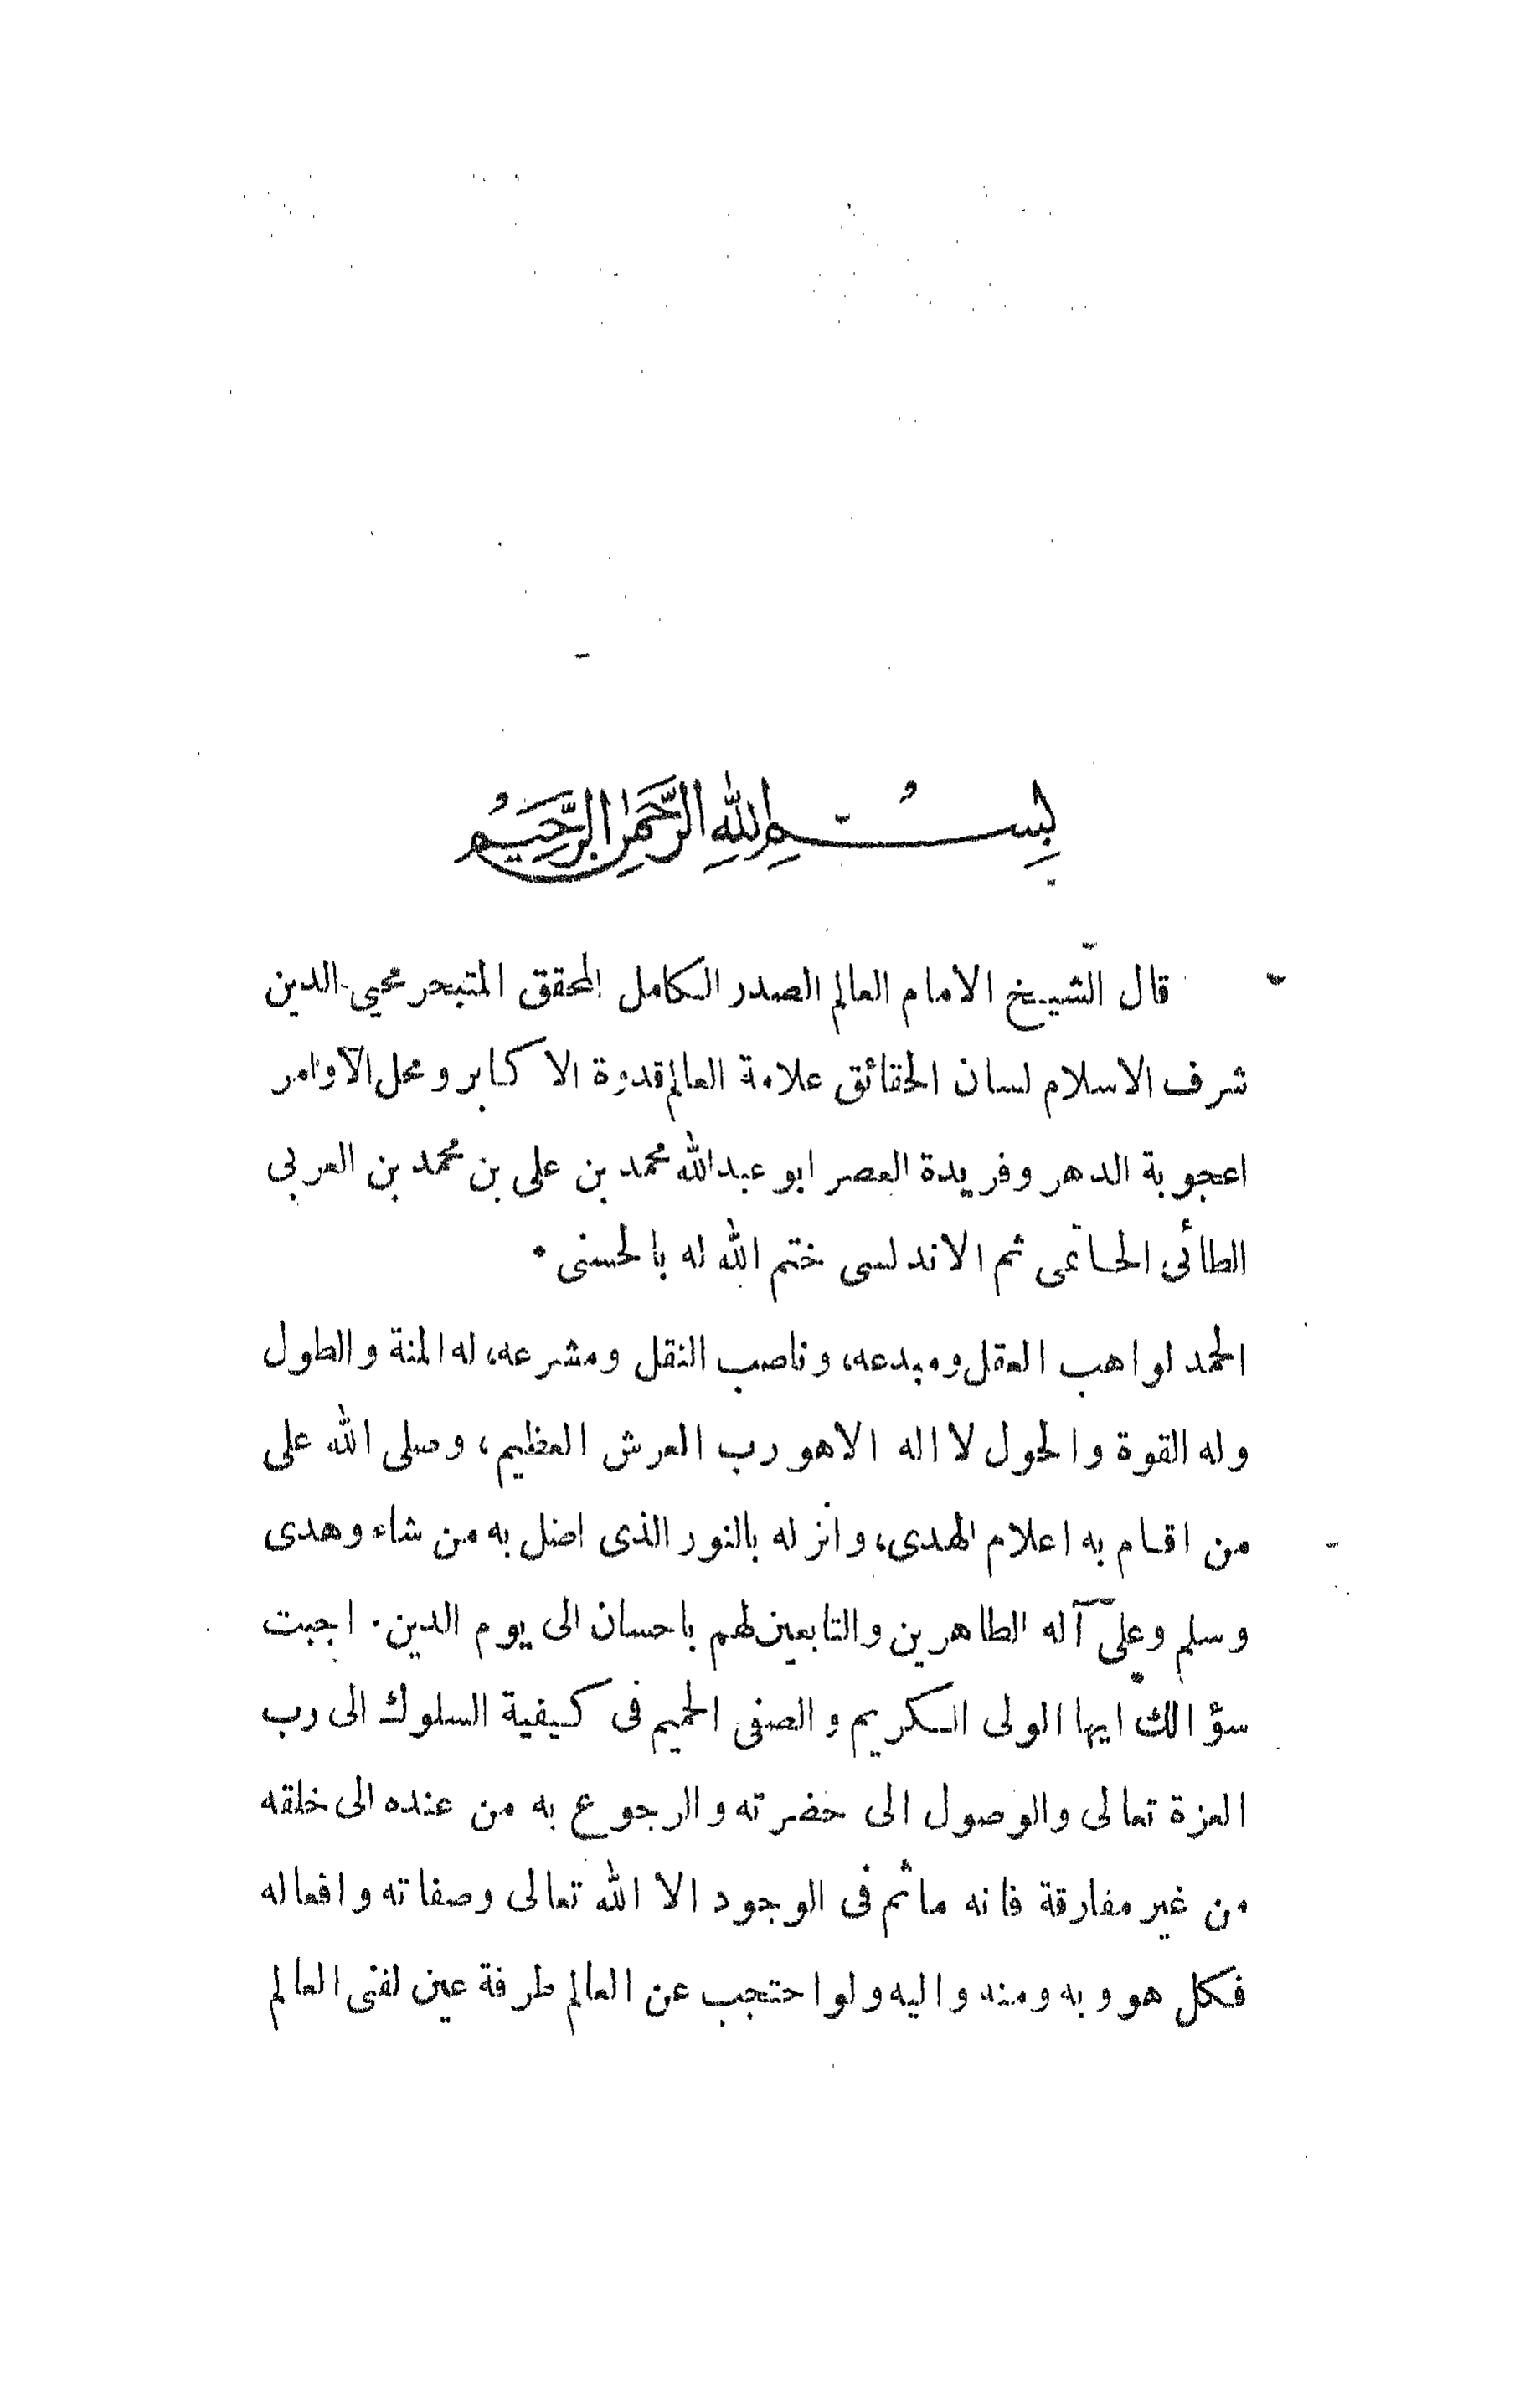 بِسْمِ اللهِ الرَّحْمٰنِ الرَّحِيمِ
قال الشيخ الامام العالم الصدر الكامل المحقق المتبحر محيي الدين
شرف الاسلام لسان الحقائق علامة العالم قدوة الاكابر ومحل الاوامر
اعجوبة الدهر وفريدة العصر ابو عبدالله محمد بن على بن محمد بن العربى
الطائى الحاتمى ثم الاندلسى ختم الله له بالحسنى .
الحمد لواهب العقل ومبدعه، وناصب النقل ومشرعه، له المنة والطول
وله القوة والحول لا اله الا هو رب العرش العظيم، وصلى الله على
من اقام به اعلام الهدى، وانزله بالنور الذى اضل به من شاء وهدى
وسلم وعلى آله الطاهرين والتابعين لهم باحسان الى يوم الدين . اجبت
سؤالك ايها الولى الكريم والصفى الحميم فى كيفية السلوك الى رب
العزة تعالى والوصول الى حضرته والرجوع به من عنده الى خلقه
من غير مفارقة فانه ما ثم فى الوجود الا الله تعالى وصفاته وافعاله
فكل هو وبه ومنه واليه ولو احتجب عن العالم طرفة عين لفنى العالم